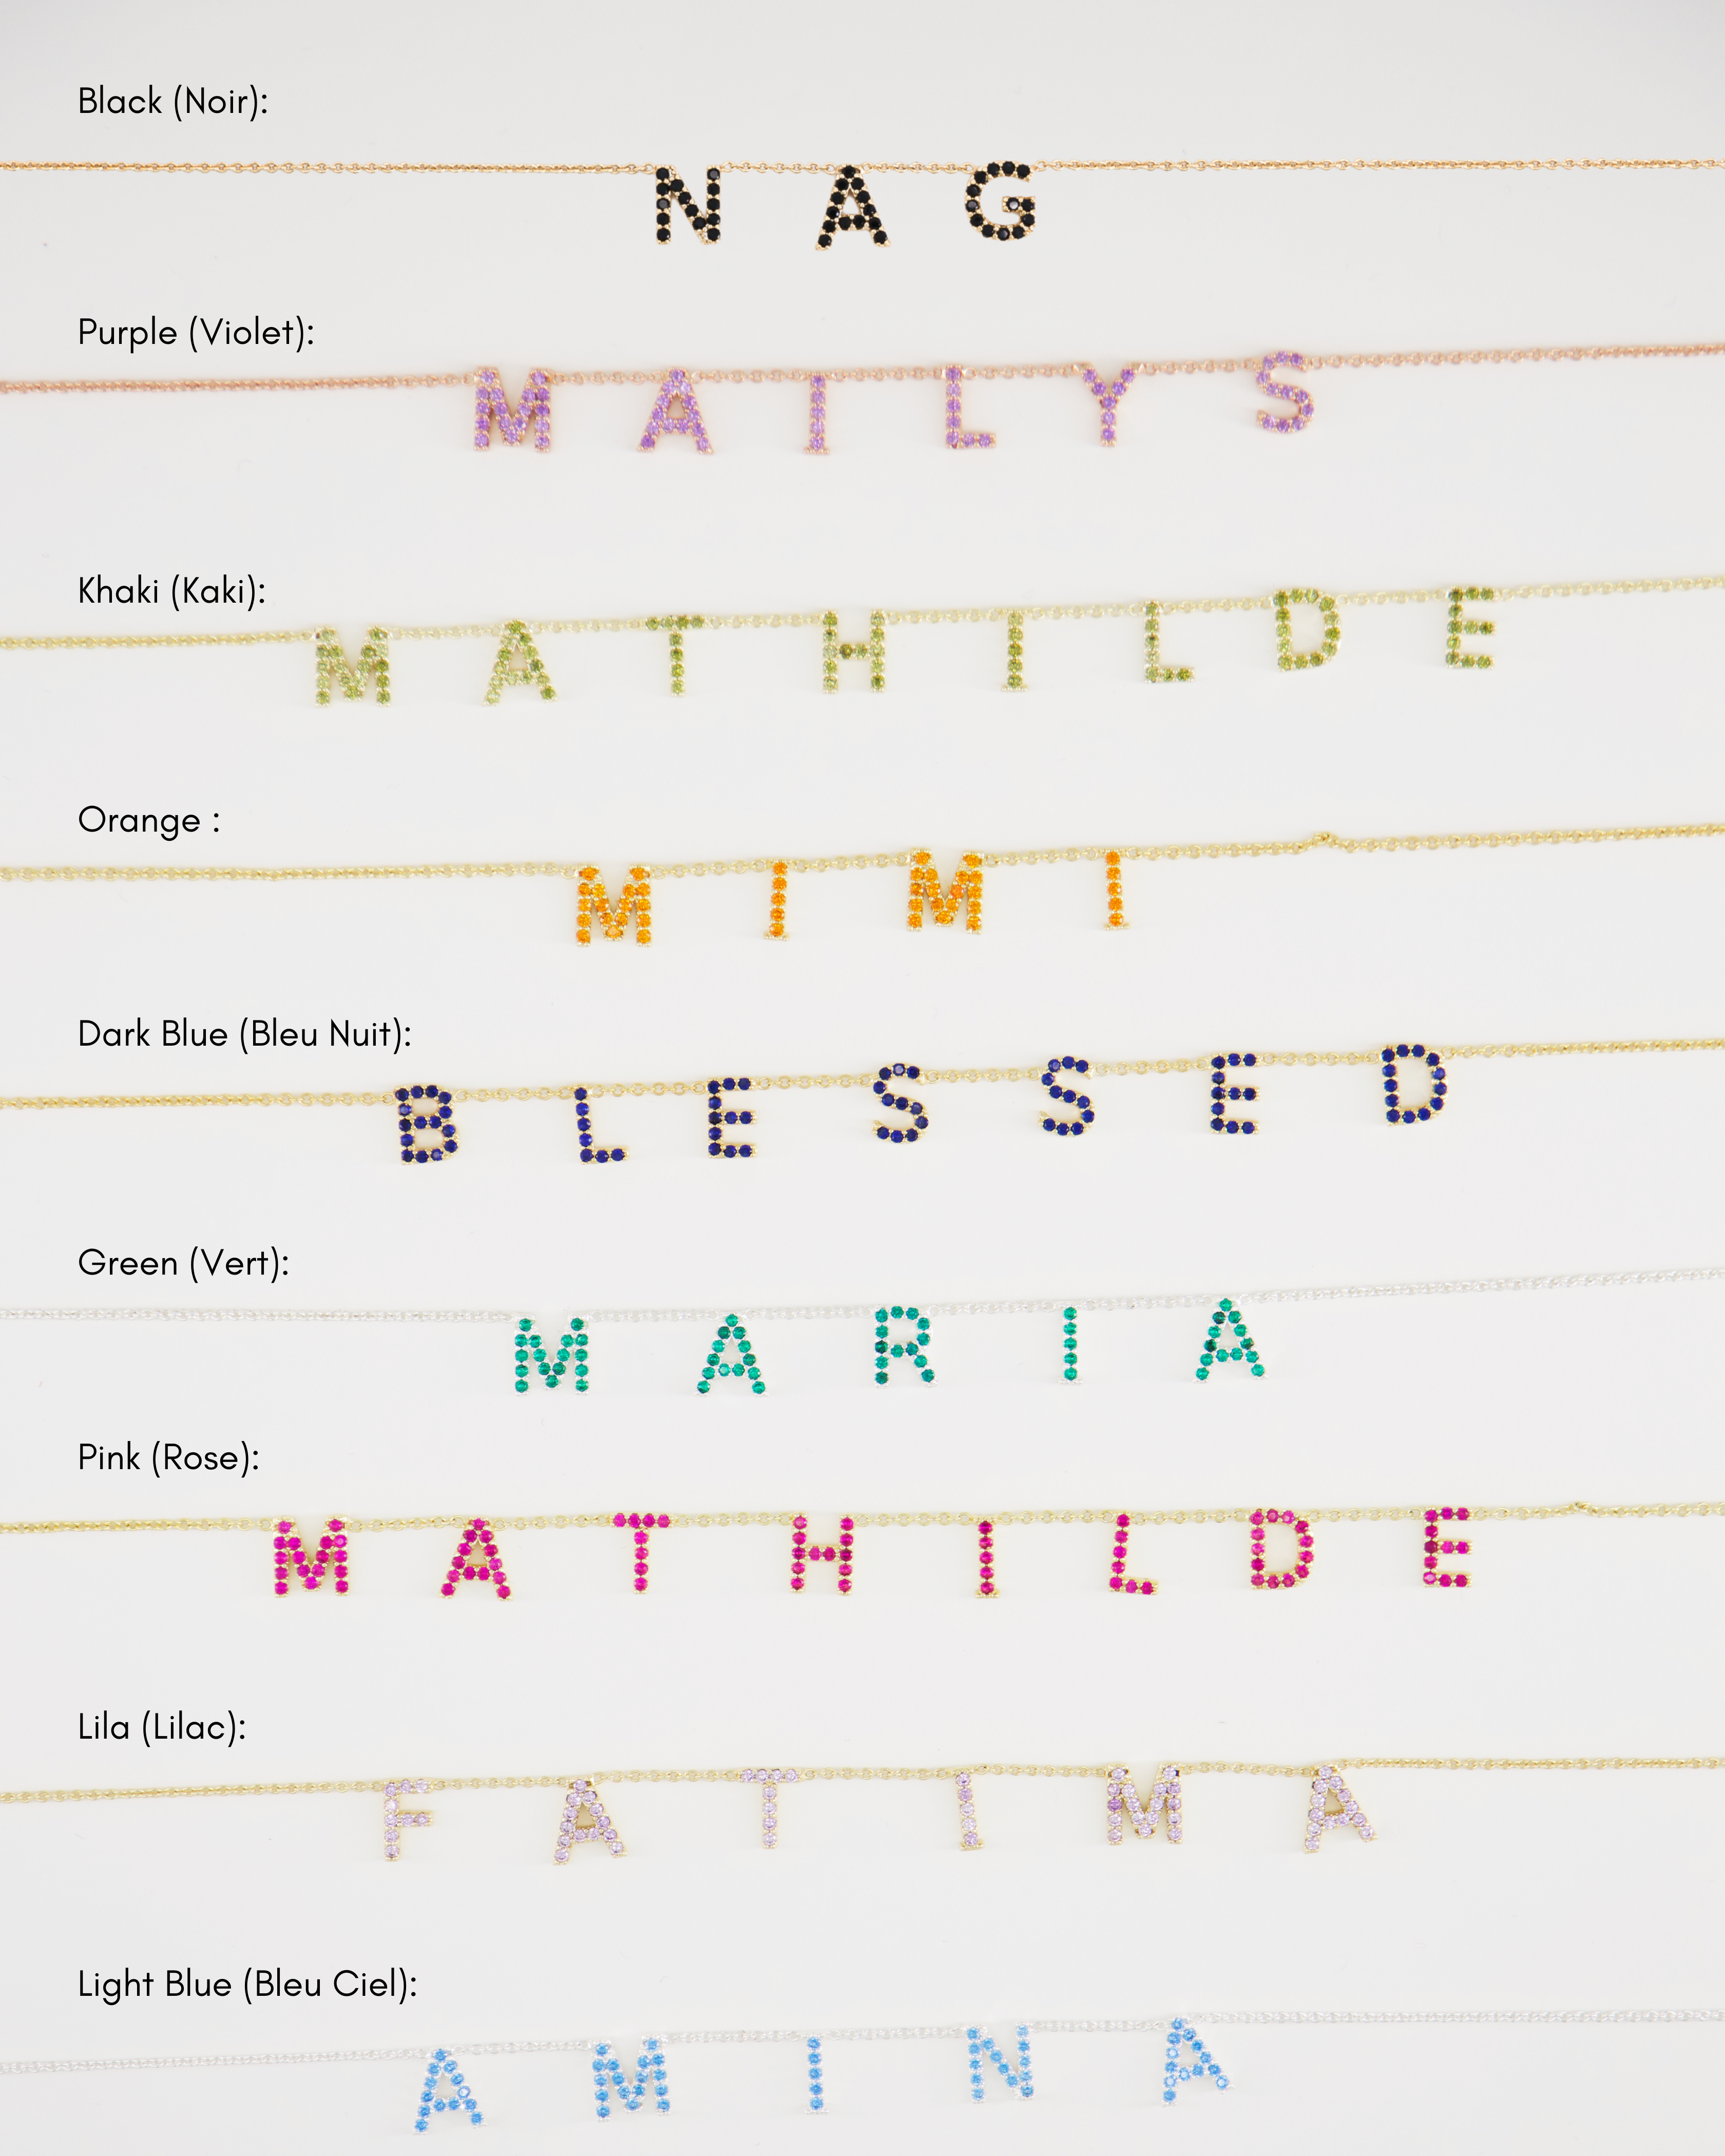 Black (Noir):
N A G
Purple (Violet):
M A I L Y S
Khaki (Kaki):
M A T H I L D E
Orange :
M I M I
Dark Blue (Bleu Nuit):
B L E S S E D
Green (Vert):
M A R I A
Pink (Rose):
M A T H I L D E
Lila (Lilac):
F A T I M A
Light Blue (Bleu Ciel):
A M I N A